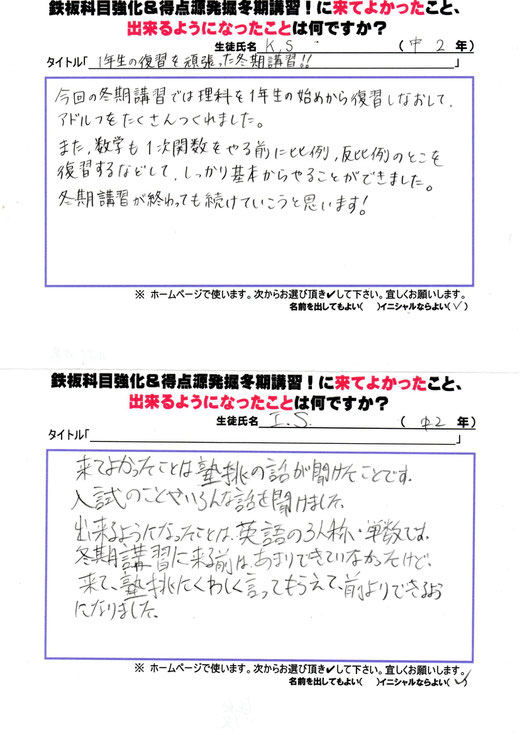 鉄板科目強化&得点源発掘冬期講習!に来てよかったこと、
出来るようになったことは何ですか?
生徒氏名 K.S (中2年)
タイトル「1年生の復習を頑張った冬期講習!!」
今回の冬期講習では理科を1年生の始めから復習しなおして、
アドルフをたくさんつくれました。
また、数学も1次関数をやる前に比例,反比例のとこを
復習するなどして、しっかり基本からやることができました。
冬期講習が終わっても続けていこうと思います!
※ ホームページで使います。次からお選び頂き✔して下さい。宜しくお願いします。
名前を出してもよい( )イニシャルならよい(✓)
鉄板科目強化&得点源発掘冬期講習!に来てよかったこと、
出来るようになったことは何ですか?
生徒氏名 I.S. (中2年)
タイトル「」
来てよかったことは塾挑の話が聞けたことです。
入試のことやいろんな話を聞けました。
出来るようになったことは、英語の3人称・単数です。
冬期講習に来る前は、あまりできていなかったけど、
来て、塾挑にくわしく言ってもらえて、前よりできるよう
になりました。
※ ホームページで使います。次からお選び頂き✔して下さい。宜しくお願いします。
名前を出してもよい( )イニシャルならよい(✓)